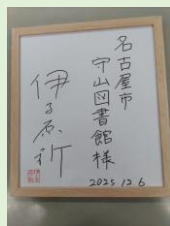 名古屋市
守山図書館様
伊与原新
2025 12 6